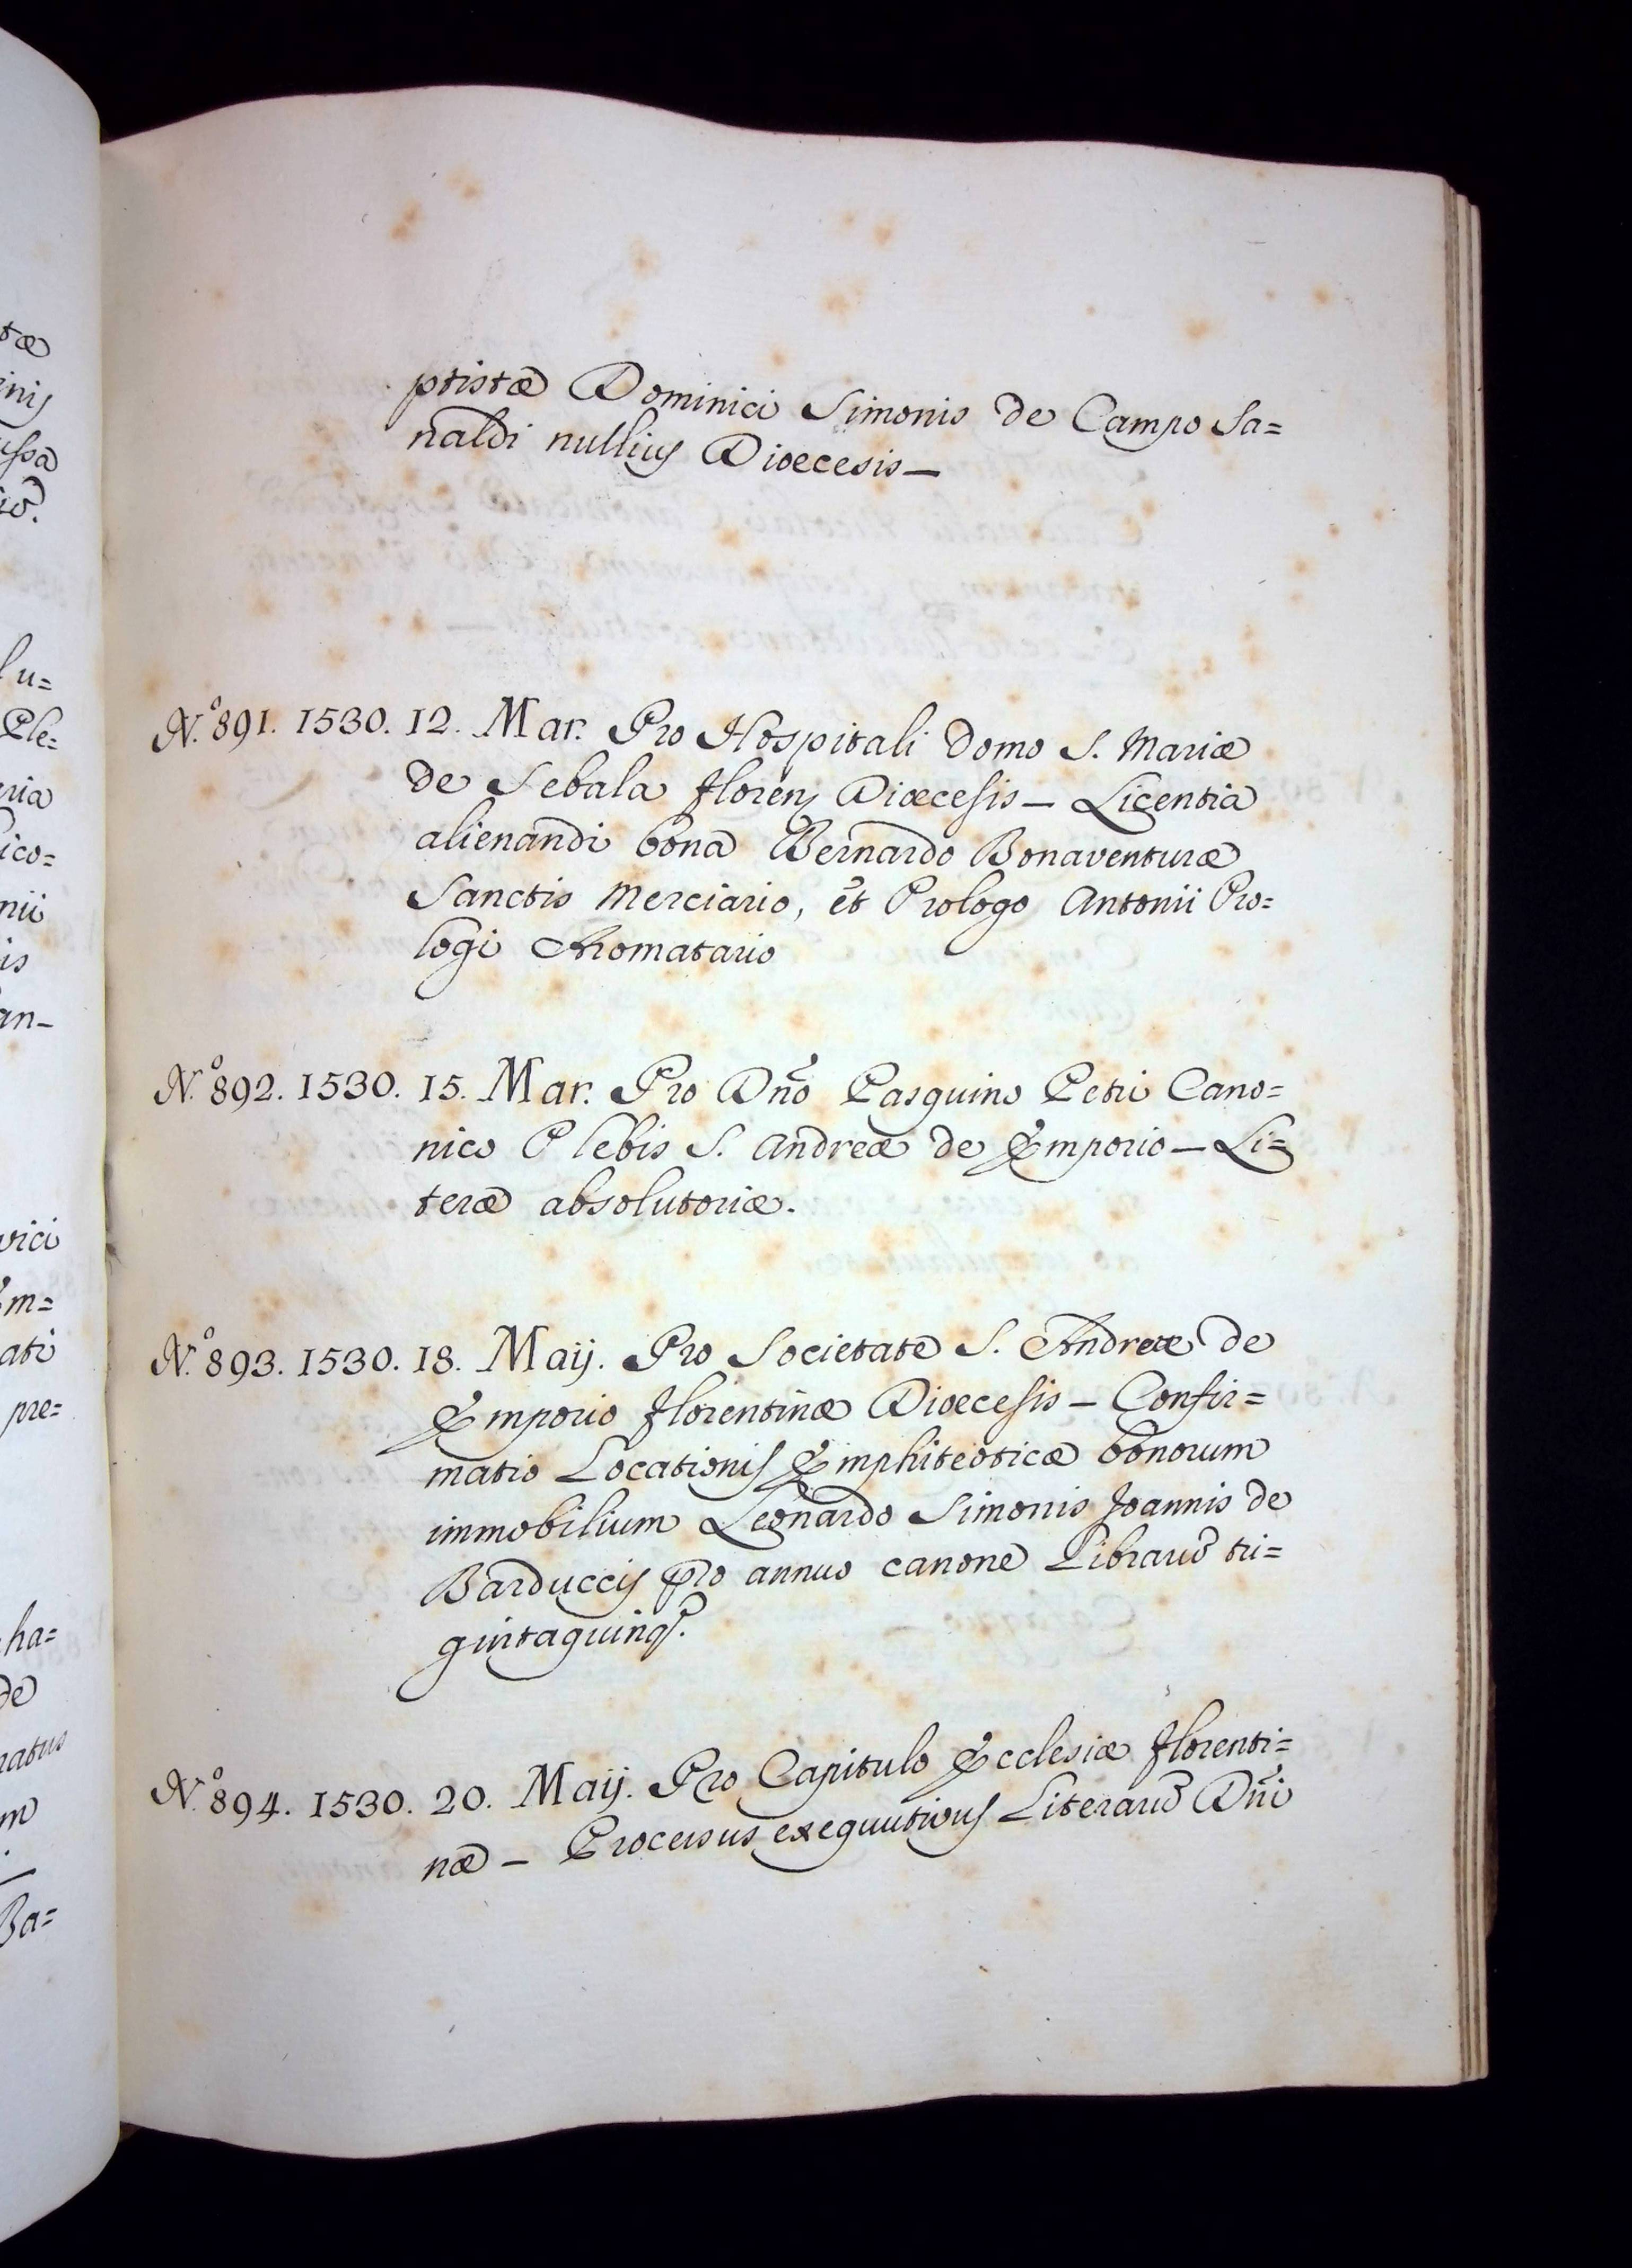 ptistæ Dominici Simonis de Campo Sa=
naldi nullius Dioecesis —
N.º 891. 1530. 12. Mar. Pro Hospitali domo S. Mariæ
de Sebala florens Diœcesis — Licentia
alienandi bona Bernardo Bonaventuræ
Sanctis Merciario, et Prologo Antonii Pro=
logi Aromatario
N.º 892. 1530. 15. Mar. Pro Dño Pasquino Petri Cano=
nico Plebis S. Andreæ de Emporio — Li=
teræ absolutoriæ.
N.º 893. 1530. 18. Maij. Pro Societate S. Andreæ de
Emporio florentinæ Diœcesis — Confir=
matio Locationis Emphiteoticæ bonorum
immobilium Leonardo Simonis Joannis de
Barduccis pro annuo canone Librarũ tri=
gintaquinq̃.
N.º 894. 1530. 20. Maij. Pro Capitulo Ecclesiæ florenti=
næ — Processus exequutivus Literarũ Dñi
tæ
inis
ussa
lu=
Ple=
eria
ico=
nii
is
an-
vici
m=
ati
pre=
ha=
de
ratus
m
Ba=